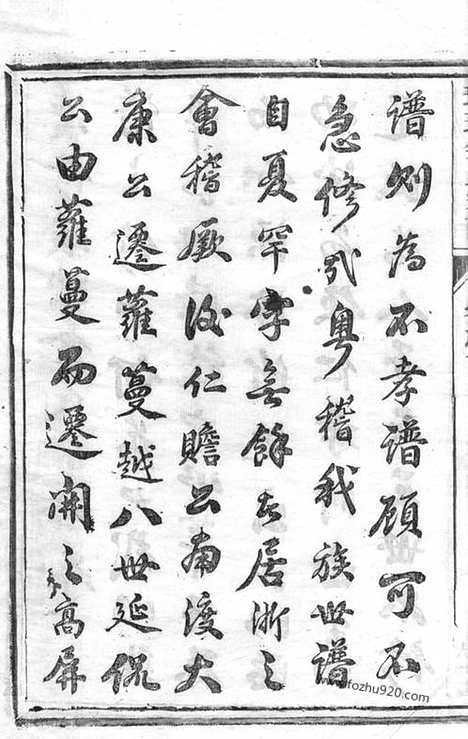 譜則為不孝譜顧可不
急修哉粤稽我族世譜
自夏罕字無餘者居浙之
會稽厥後仁贍公南渡大
康公遷蘿蔓越八世延侃
公由蘿蔓而遷開之東高屏
www.fozhu920.com